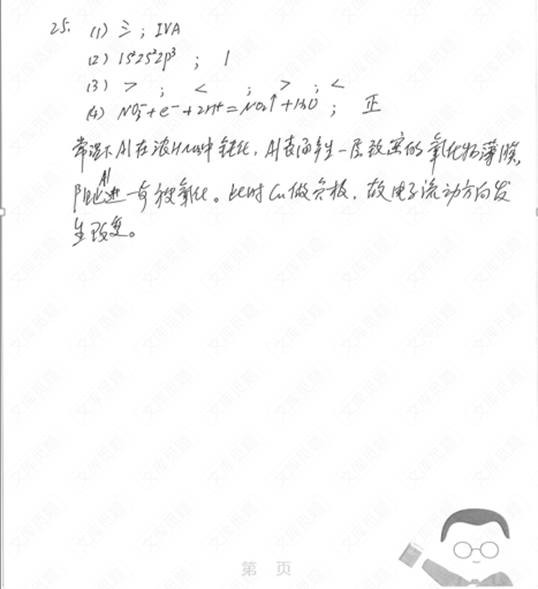 25. (1) 三 ; IVA
(2) 1s²2s²2p³ ; 1
(3) > ; < ; > ; <
(4) NO₃⁻+e⁻+2H⁺=NO₂↑+H₂O ; 正
常温下Al在浓HNO₃中钝化,Al表面产生一层致密的氧化物薄膜,
阻止Al进一步被氧化。此时Cu做负极,故电子流动方向发
生改变。
第 页